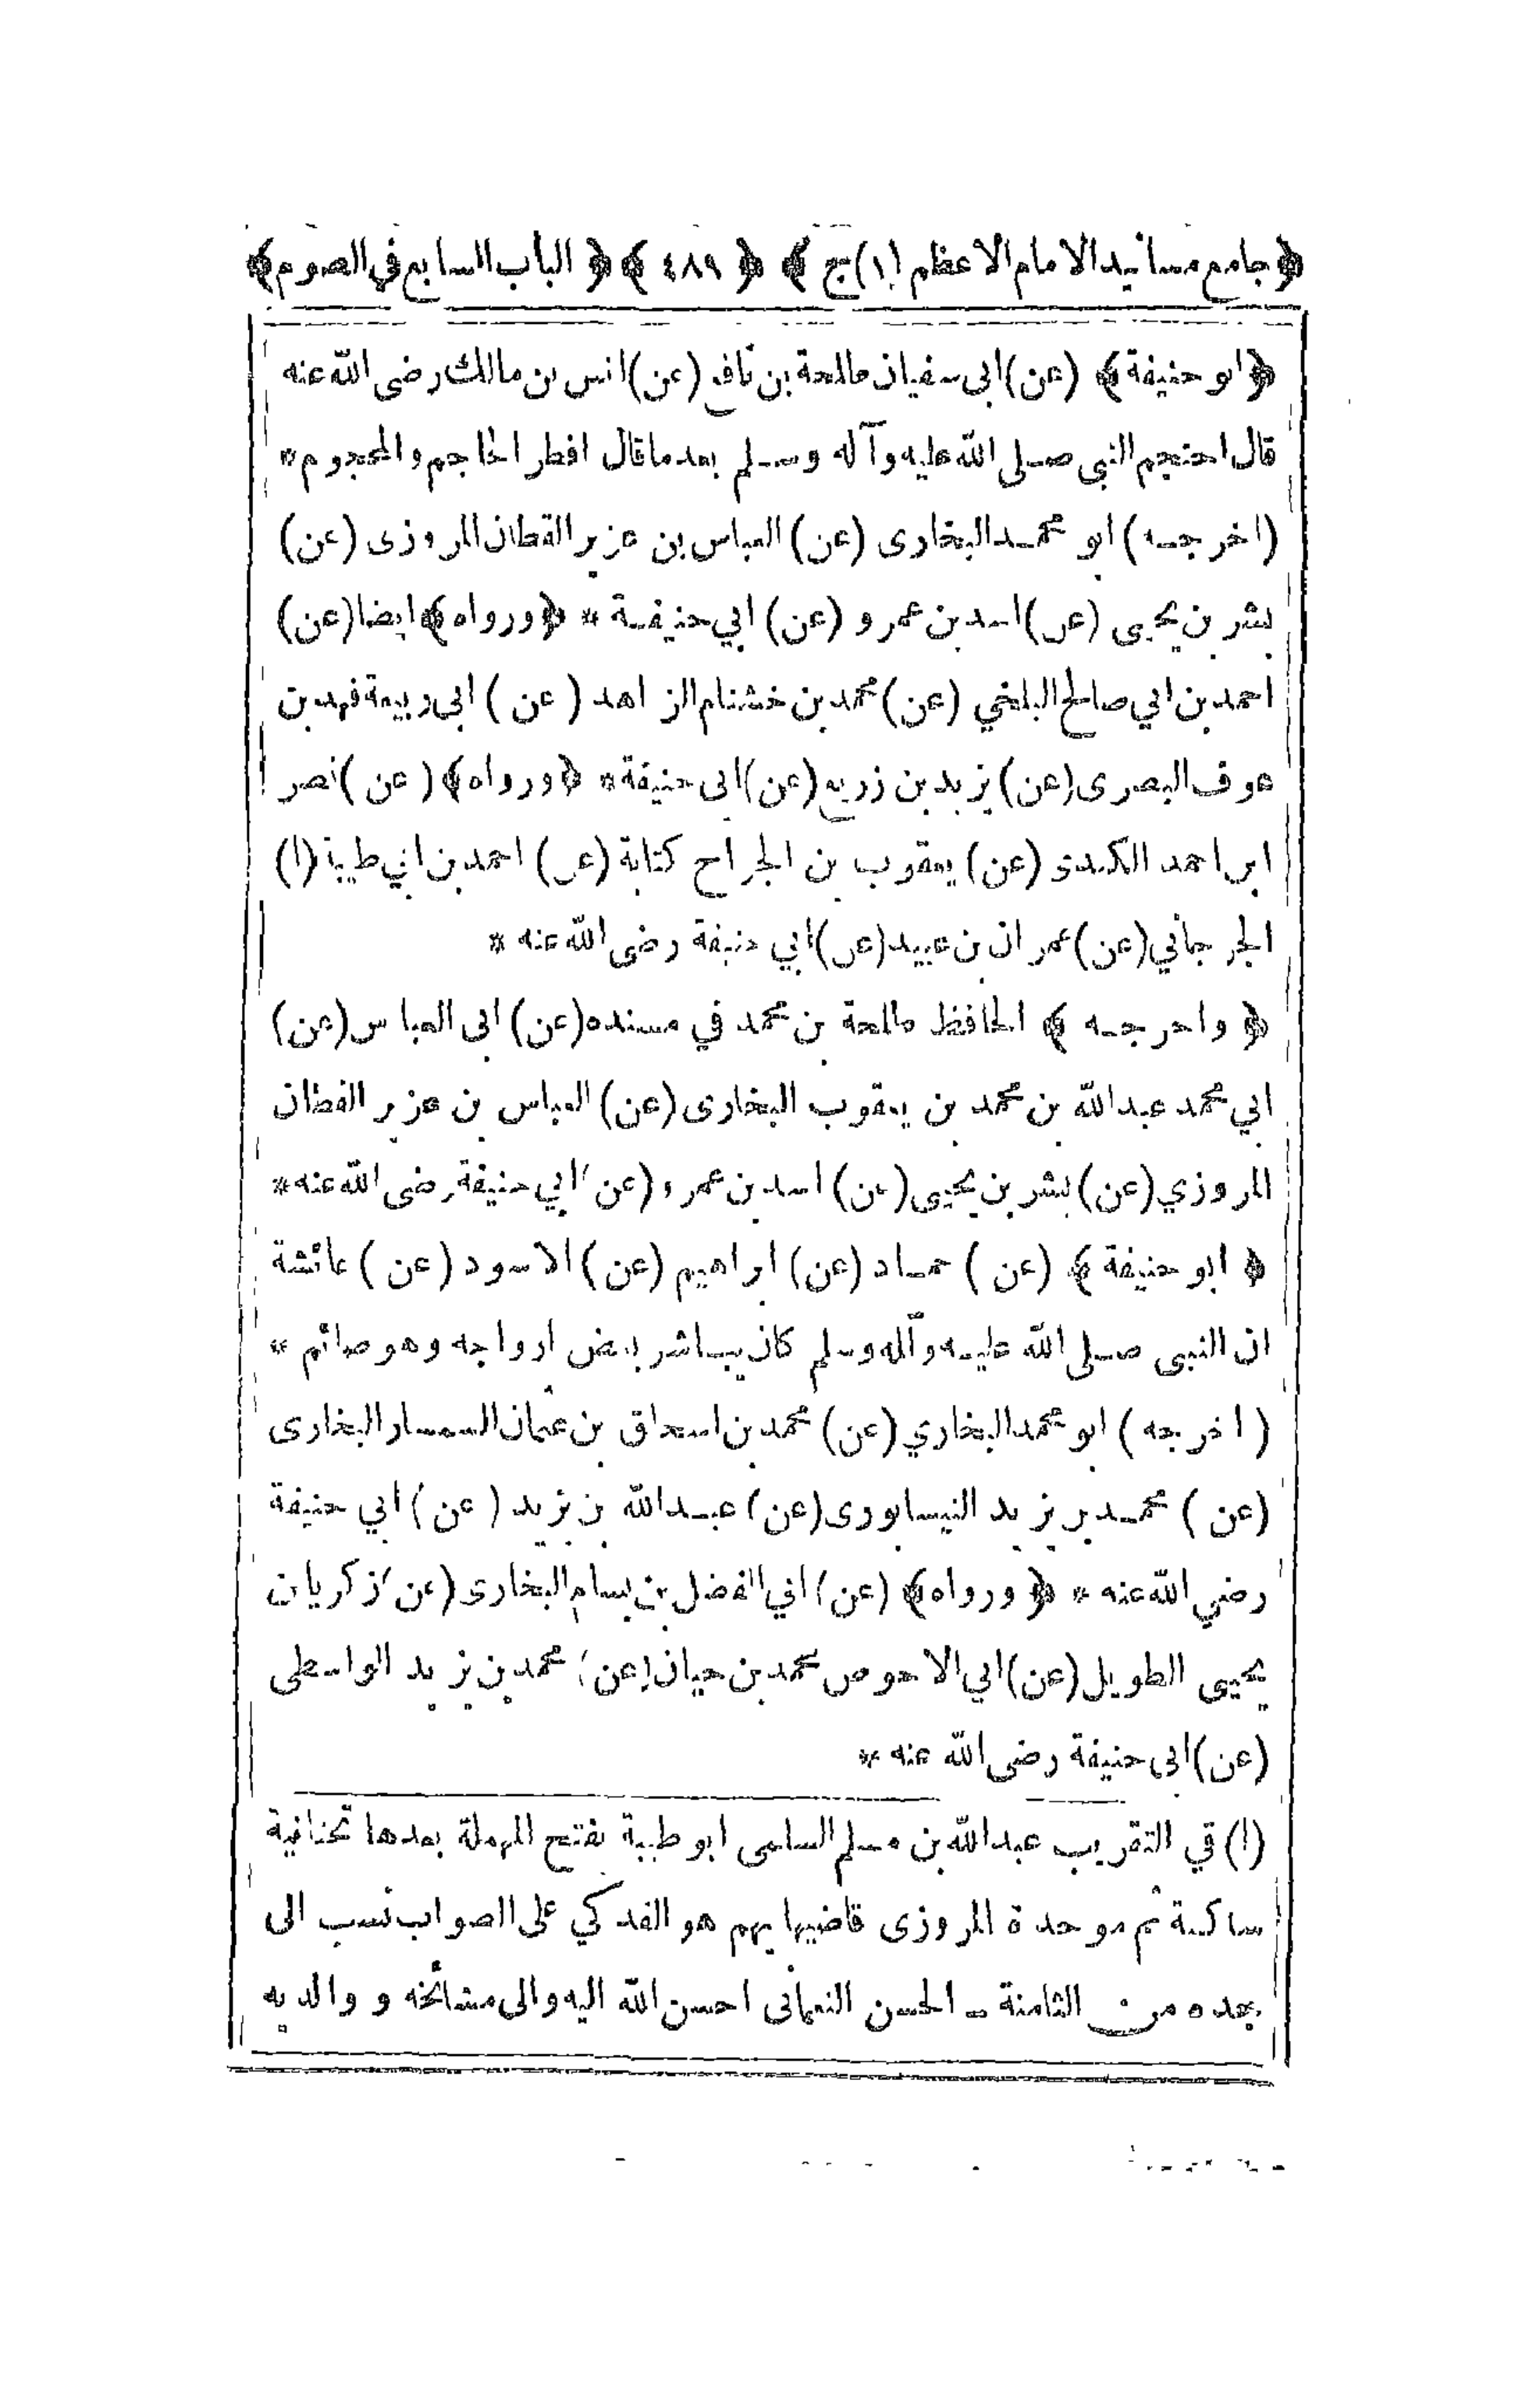 ﴿ جامع مسانيد الامام الاعظم (١) ج ﴾ ﴿ ٤٨٩ ﴾ ﴿ الباب السابع في الصوم ﴾
﴿ ابو حنيفة ﴾ (عن) ابى سفيان طلحة بن نافع (عن) انس بن مالك رضى الله عنه
قال احتجم النبى صلى الله عليه وآله وسلم بعد ما قال افطر الحاجم والمحجوم *
(اخرجه) ابو محمد البخارى (عن) العباس بن عزير القطان المروزى (عن)
بشر بن يحيى (عن) اسد بن عمرو (عن) ابي حنيفة * ﴿ ورواه ﴾ ايضا (عن)
احمد بن ابي صالح البلخي (عن) محمد بن خشنام الزاهد (عن) ابى ربيعة فهد بن
عوف البصرى (عن) يزيد بن زريع (عن) ابى حنيفة * ﴿ ورواه ﴾ (عن) نصر
ابن احمد الكندى (عن) يعقوب بن الجراح كتابة (عن) احمد بن ابي طيبة (١)
الجرجاني (عن) عمران بن عبيد (عن) ابي حنيفة رضى الله عنه *
﴿ واخرجه ﴾ الحافظ طلحة بن محمد في مسنده (عن) ابى العباس (عن)
ابي محمد عبدالله بن محمد بن يعقوب البخارى (عن) العباس بن عزير القطان
المروزي (عن) بشر بن يحيى (عن) اسد بن عمرو (عن) ابي حنيفة رضى الله عنه *
﴿ ابو حنيفة ﴾ (عن) حماد (عن) ابراهيم (عن) الاسود (عن) عائشة
ان النبى صلى الله عليه وآله وسلم كان يباشر بعض ازواجه وهو صائم *
(اخرجه) ابو محمد البخاري (عن) محمد بن اسحاق بن عثمان السمسار البخارى
(عن) محمد بن يزيد النيسابورى (عن) عبدالله بن يزيد (عن) ابي حنيفة
رضي الله عنه * ﴿ ورواه ﴾ (عن) ابي الفضل بن بسام البخارى (عن) زكريا بن
يحيى الطويل (عن) ابي الاحوص محمد بن حيان (عن) محمد بن يزيد الواسطى
(عن) ابى حنيفة رضى الله عنه *
(١) في التقريب عبدالله بن مسلم السلمى ابو طيبة بفتح المهملة بعدها تحتانية
ساكنة ثم موحدة المروزى قاضيها يهم هو الفدكي على الصواب نسب الى
جده من الثامنة ــ الحسن النعمانى احسن الله اليه والى مشائخه و والديه